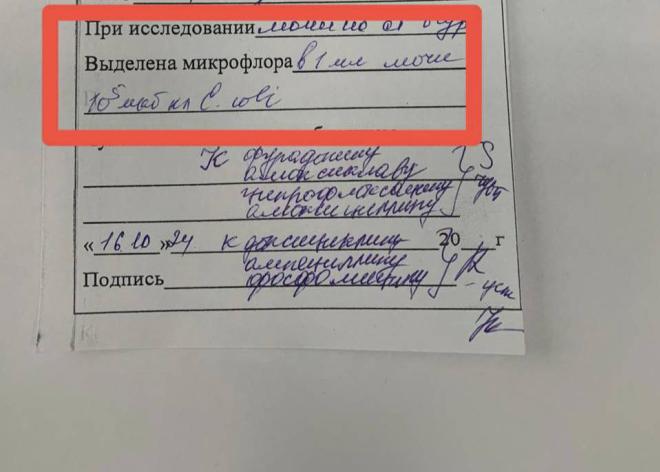 При исследовании мочи на
Выделена микрофлора в 1 мл мочи
10⁵ мкб кл E. coli
К фурадонину } S
амоксиклаву
ципрофлоксацину
амоксициллину
«16.10»24 к доксициклину 20 г
ампициллину } R
Подпись фосфомицину - уст